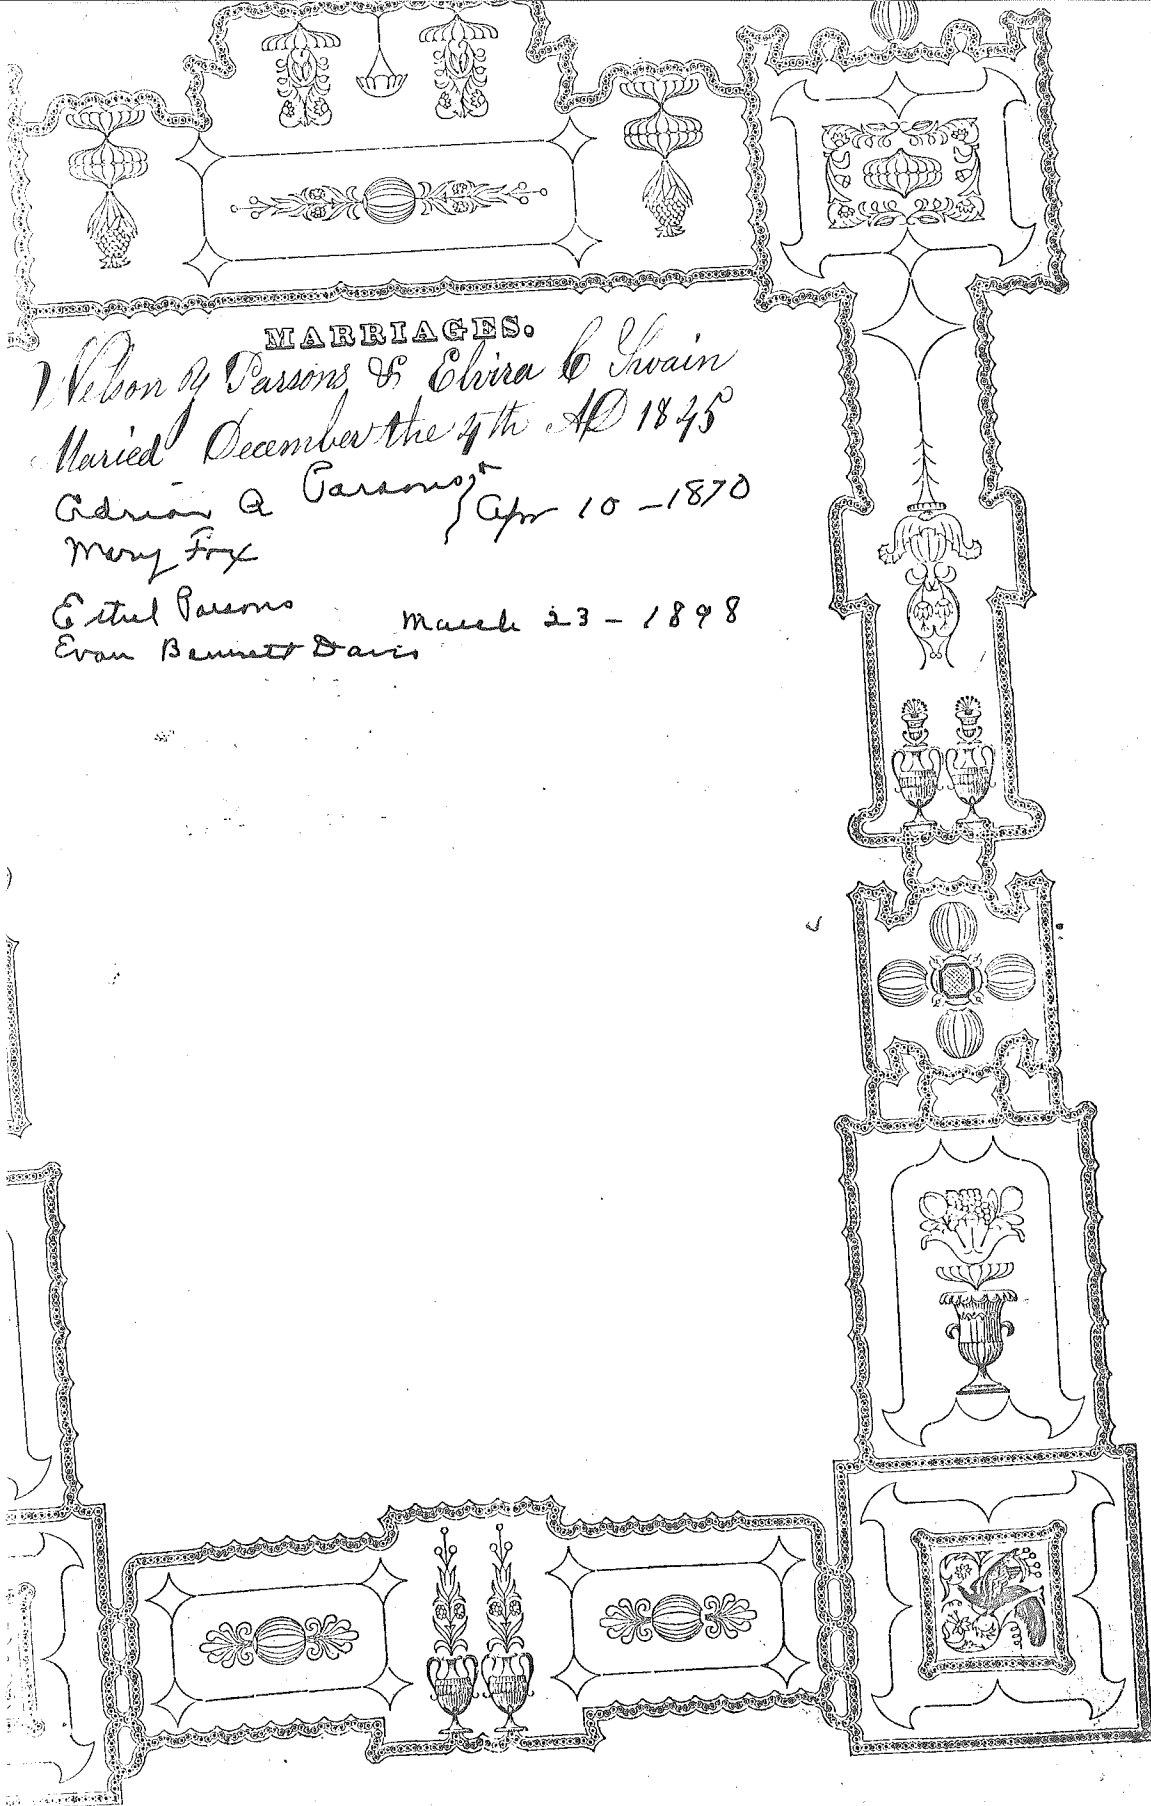 MARRIAGES.
Welson Y Parsons & Elvira C Swain
Maried December the 4th AD 1845
Adrian A Parsons
Mary Fox } Apr 10 - 1870
Ethel Parsons
Evan Bennett Davis March 23 - 1898